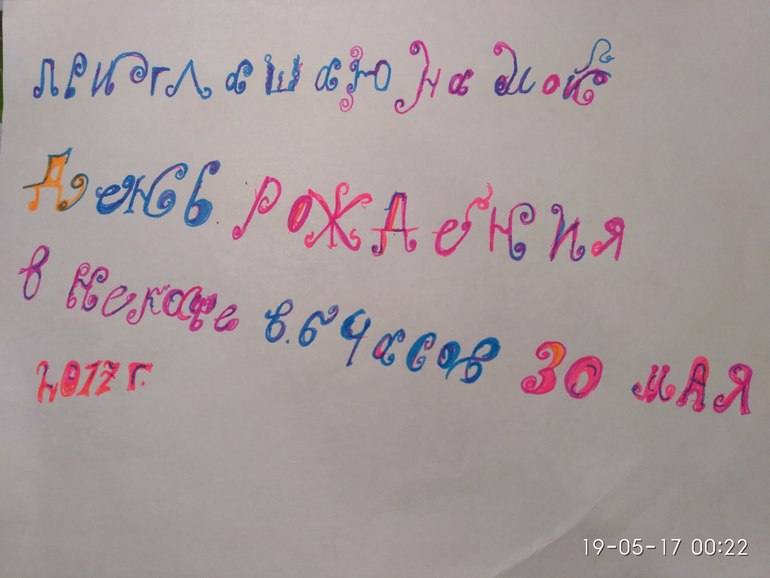 приглашаю на мой
День рождения
в Некафе в.6 часов 30 мая
2017 г.
19-05-17 00:22